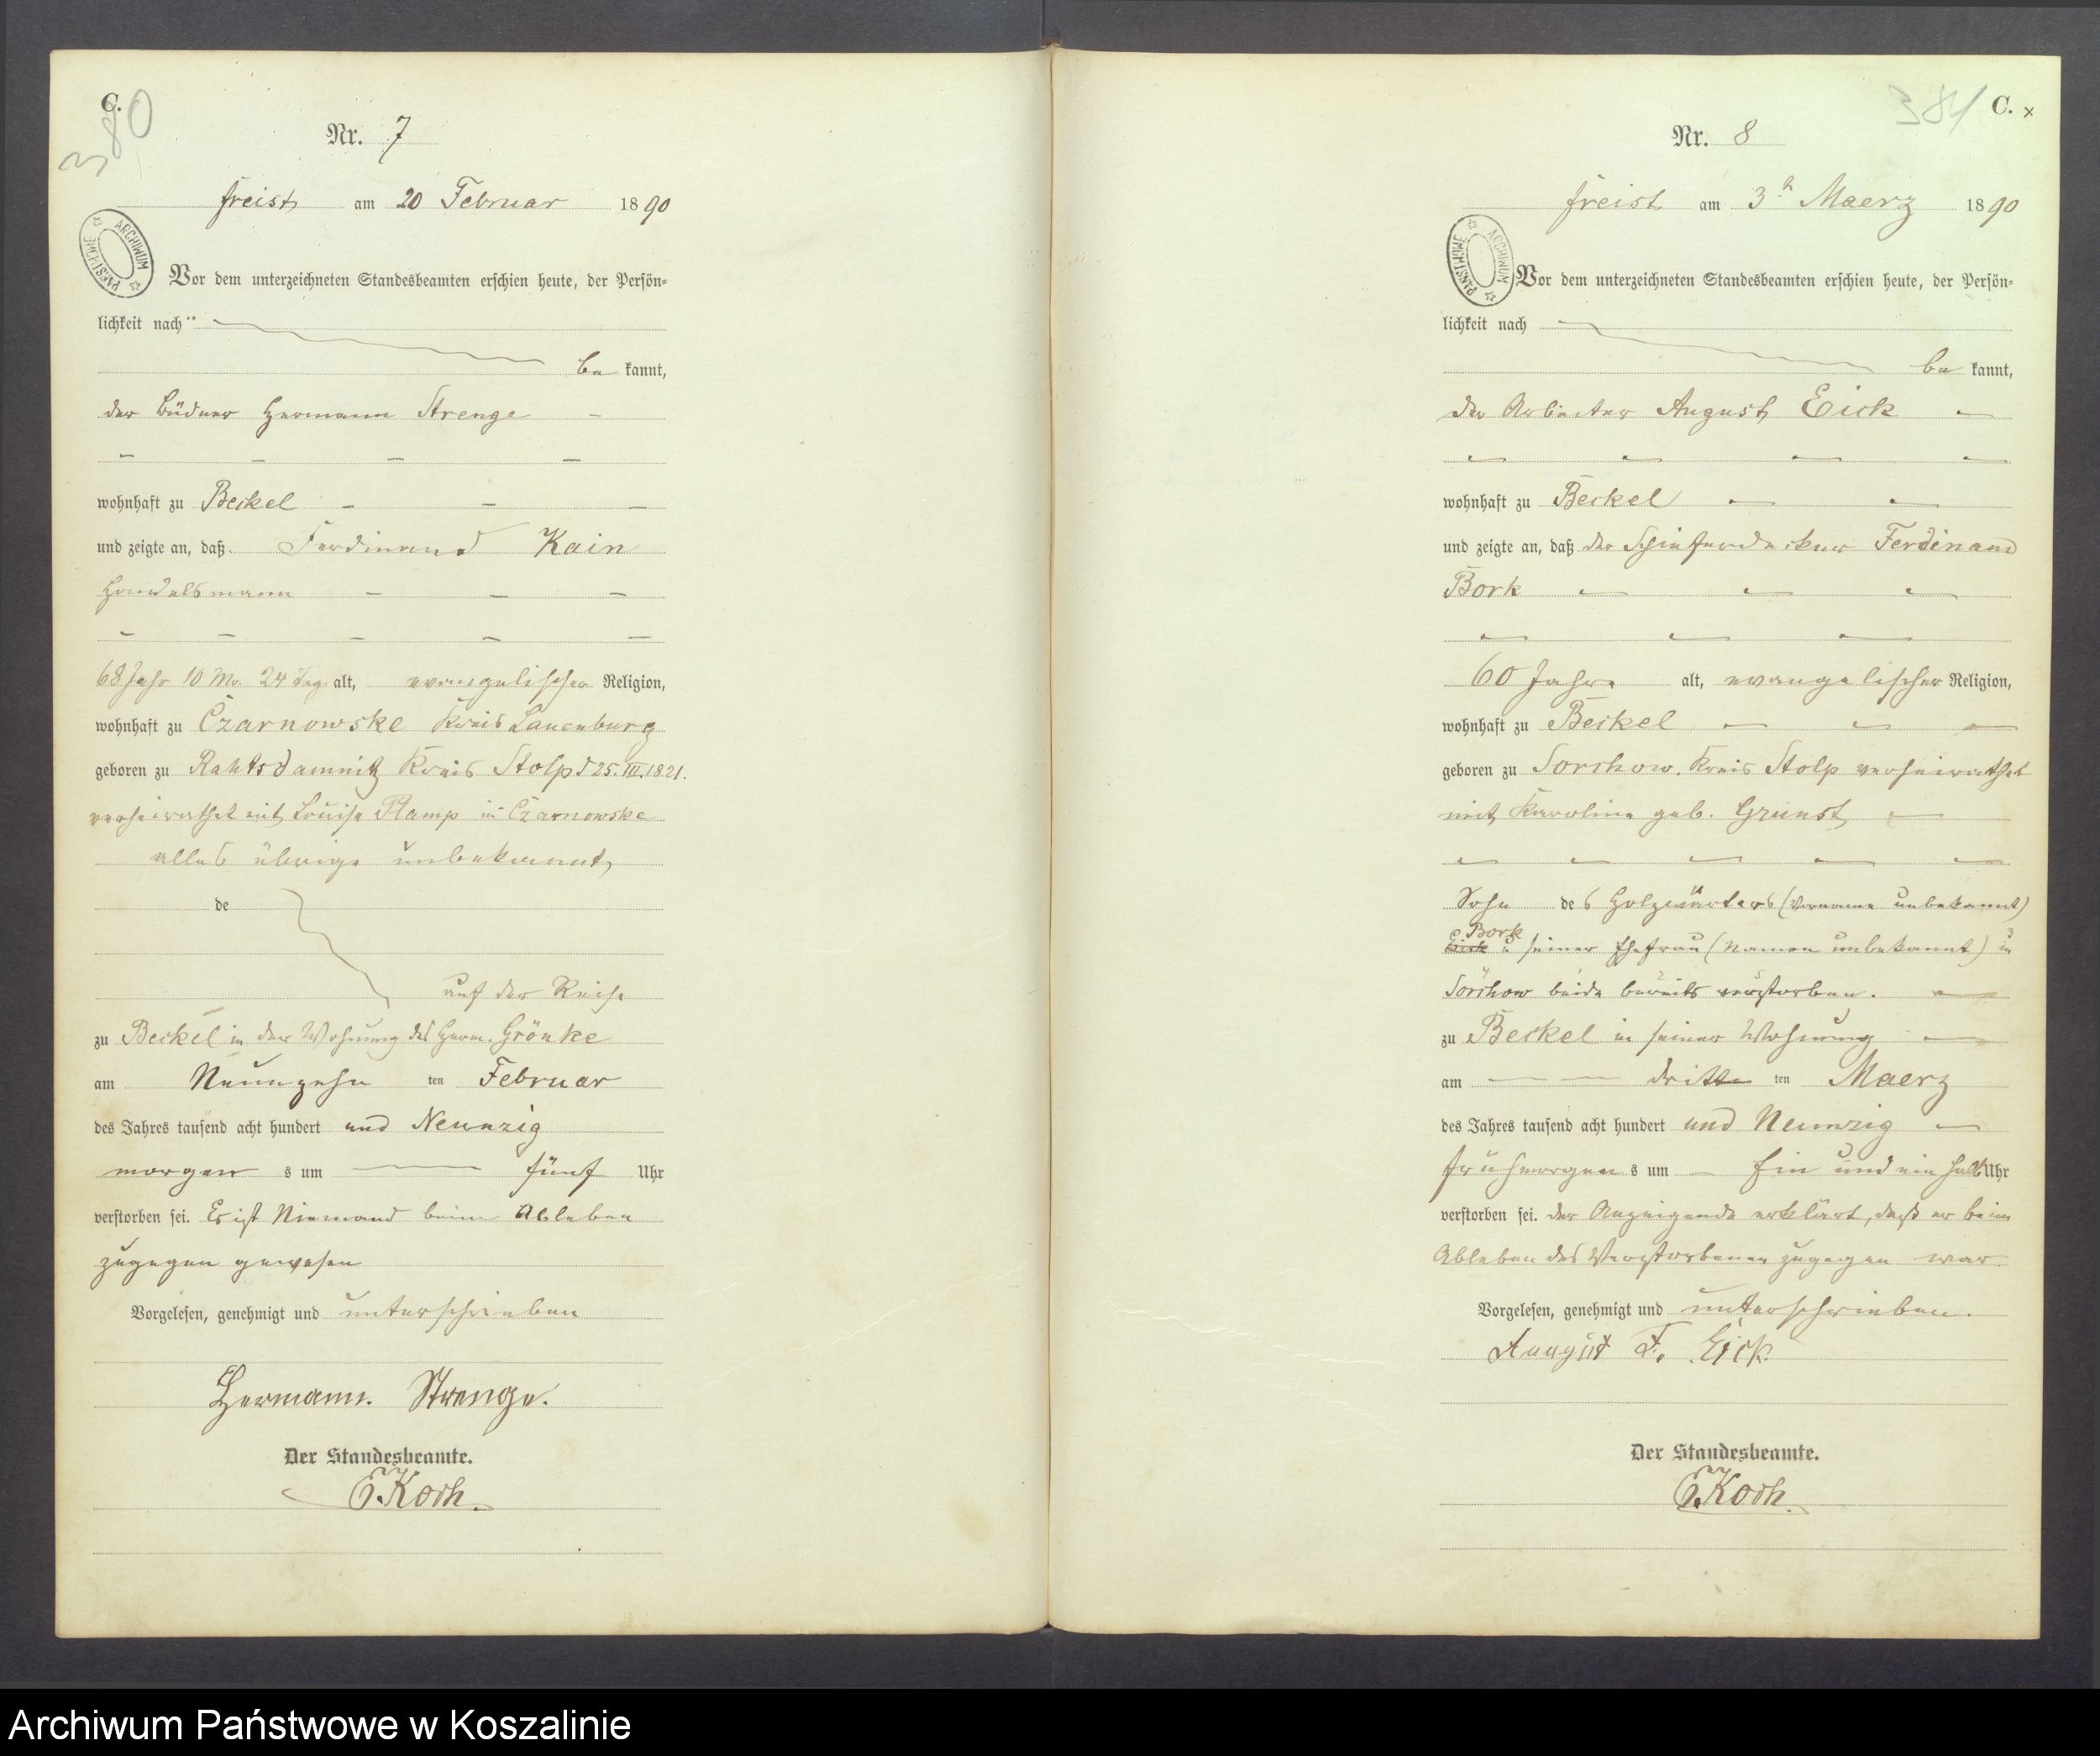 C.
380
Nr. 7
Freist am 20 Februar 1890
ARCHIWUM PAŃSTWOWE
Vor dem unterzeichneten Standesbeamten erschien heute, der Persön-
lichkeit nach
be kannt,
der Büdner Hermann Strenge
wohnhaft zu Beckel
und zeigte an, daß Ferdinand Kain
Handelsmann
68 Jahr 10 Mo. 24 Tag alt, evangelischer Religion,
wohnhaft zu Czarnowske Kreis Lauenburg
geboren zu Rahtsdamnitz Kreis Stolp d 25. III. 1821.
verheirathet mit Louise Plamp in Czarnowske
alles übrige unbekannt,
de
auf der Reise
zu Beckel in der Wohnung des Herm. Grönke
am Neunzehn ten Februar
des Jahres tausend acht hundert und Neunzig
morgen s um fünf Uhr
verstorben sei. Es ist Niemand beim Ableben
zugegen gewesen
Vorgelesen, genehmigt und unterschrieben
Hermann. Strenge.
Der Standesbeamte.
E. Koch.
384 C. x
Nr. 8
Freist am 3t Maerz 1890
ARCHIWUM PAŃSTWOWE
Vor dem unterzeichneten Standesbeamten erschien heute, der Persön-
lichkeit nach
be kannt,
der Arbeiter August Eick
wohnhaft zu Beckel
und zeigte an, daß der Schieferdecker Ferdinand
Bork
60 Jahre alt, evangelischer Religion,
wohnhaft zu Beckel
geboren zu Sorchow. Kreis Stolp verheirathet
mit Karoline geb. Grunst
Sohn des Holzwärters (Vorname unbekannt)
Eick Bork u seiner Ehefrau (Namen unbekannt) in
Sorchow beide bereits verstorben.
zu Beckel in seiner Wohnung
am dritte ten Maerz
des Jahres tausend acht hundert und Neunzig
frühmorgen s um Ein und ein halb Uhr
verstorben sei. der Anzeigende erklärt, daß er beim
Ableben des Verstorbenen zugegen war
Vorgelesen, genehmigt und unterschrieben.
August F. Eick.
Der Standesbeamte.
E. Koch.
Archiwum Państwowe w Koszalinie